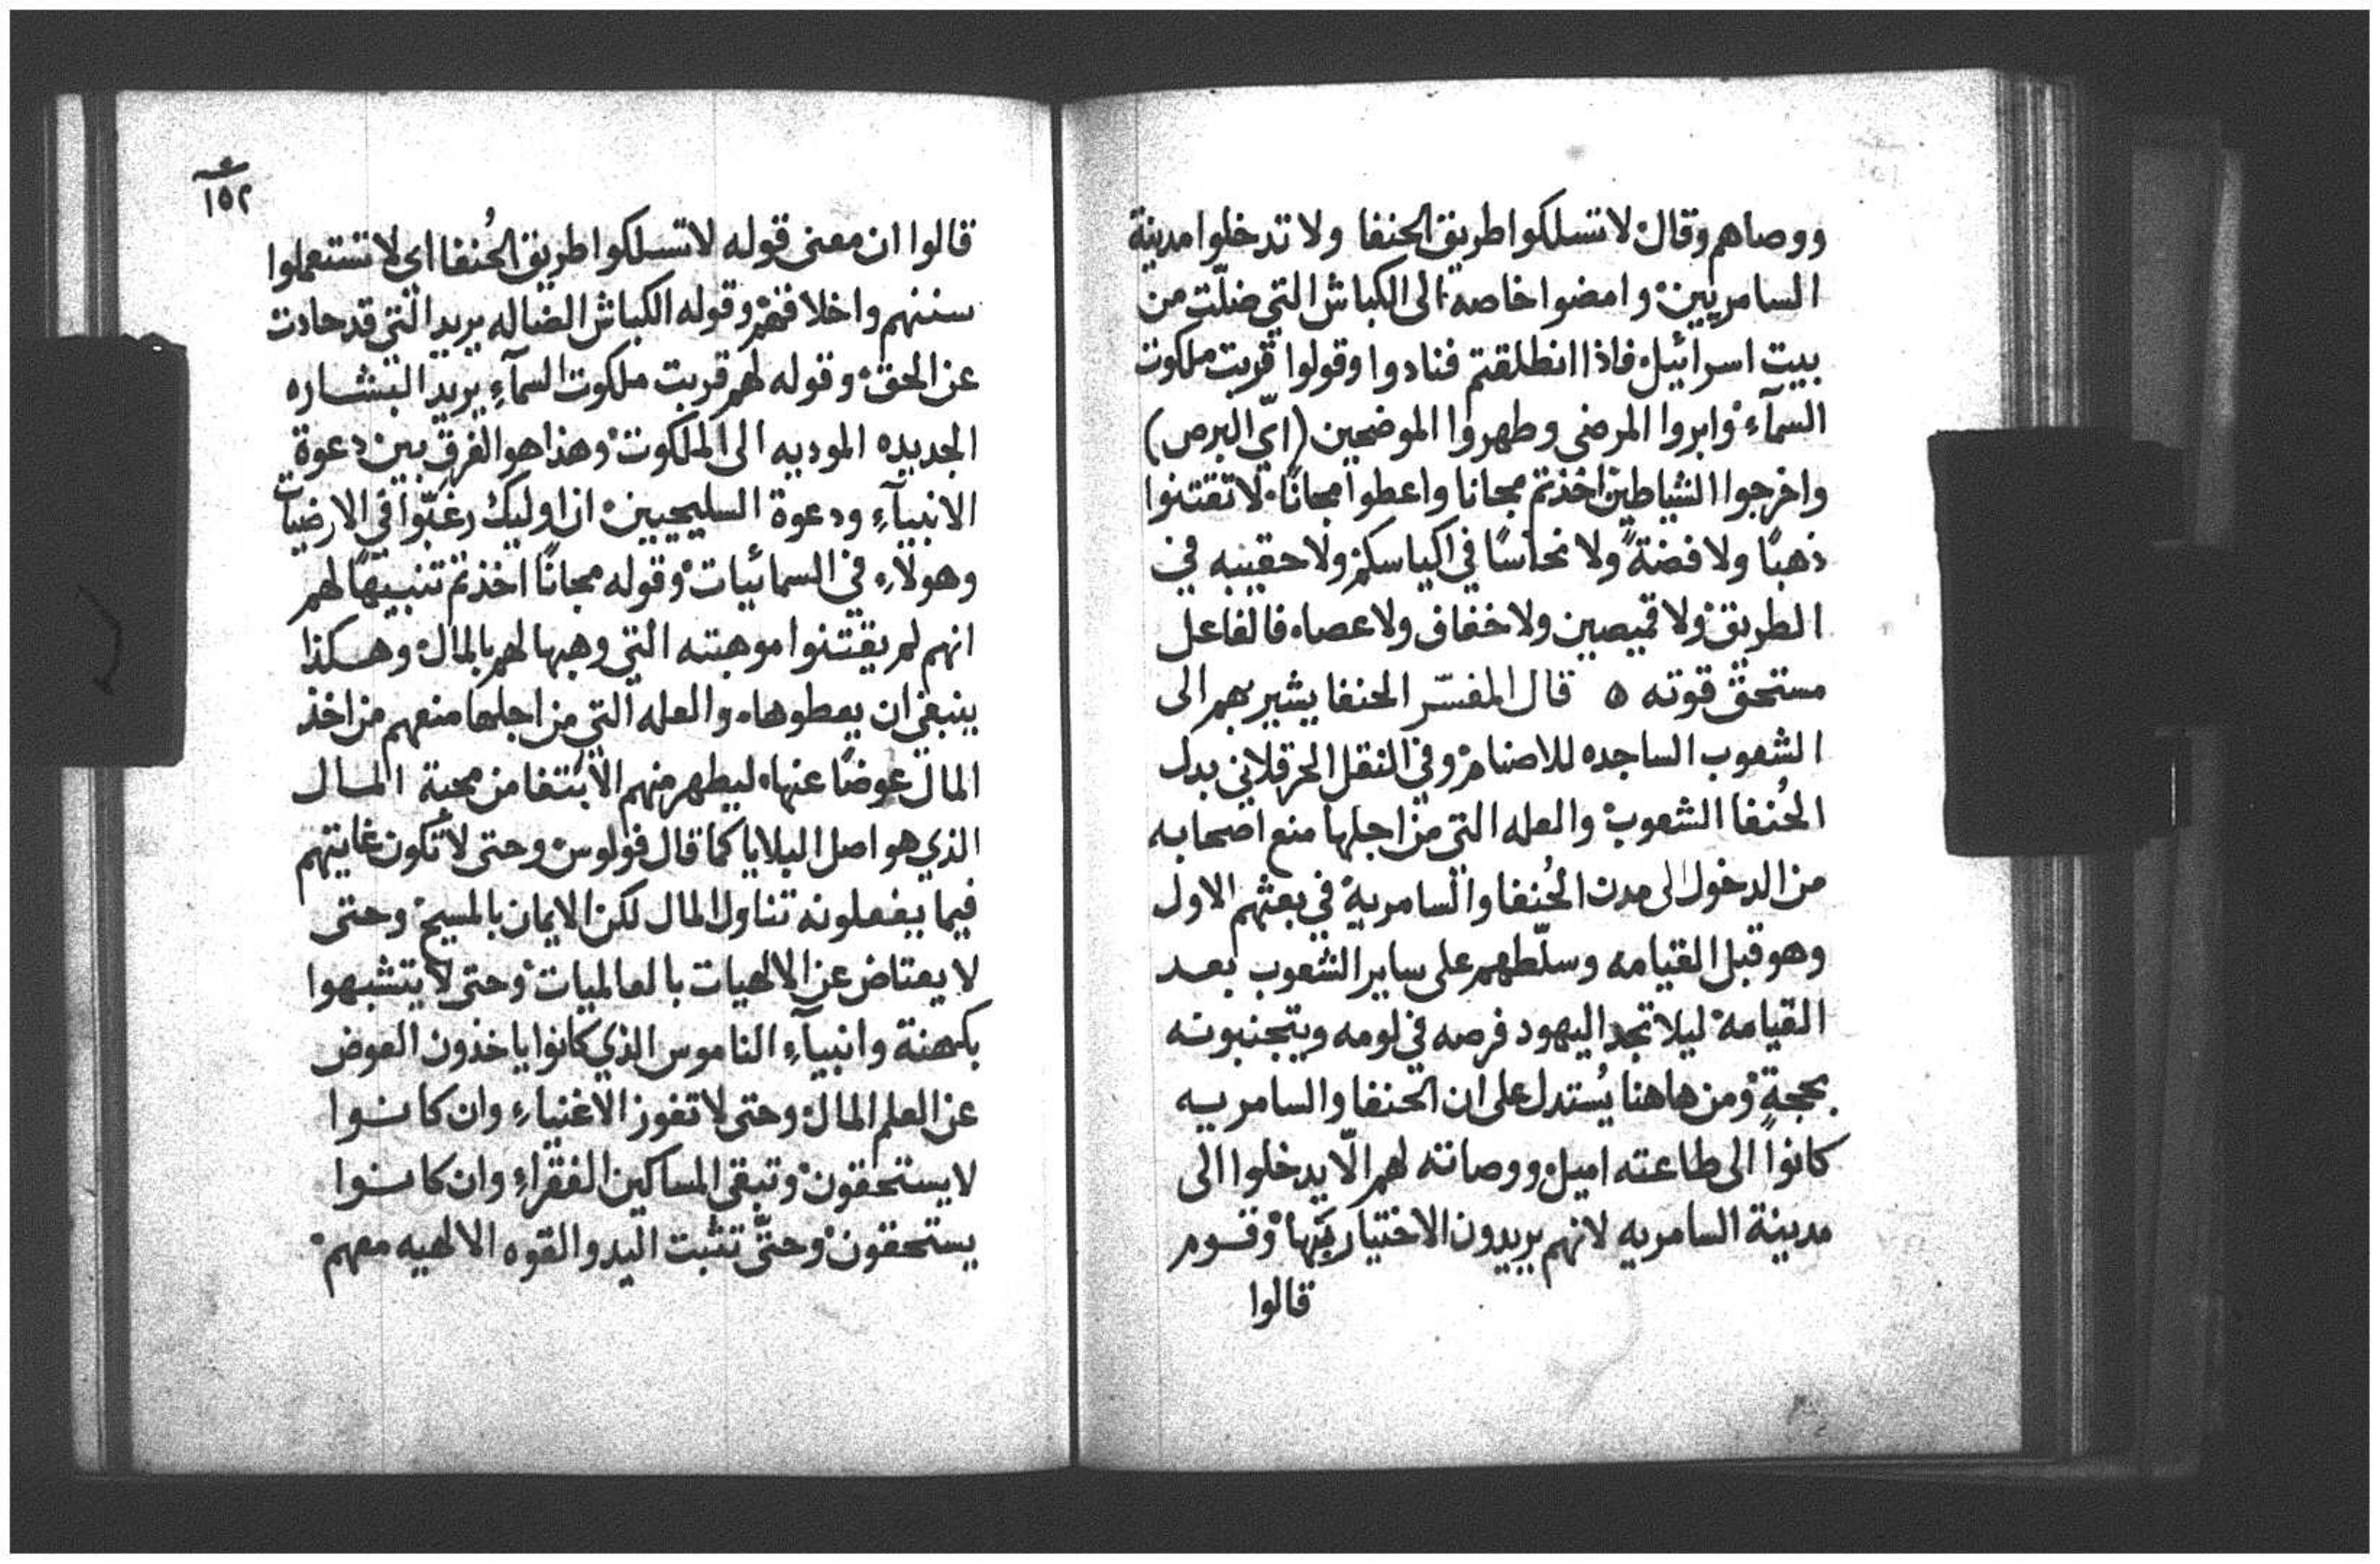 ووصاهم وقال لا تسلكوا طريق الحنفا ولا تدخلوا مدينة
السامريين وامضوا خاصه الى الكباش التي ضلّت من
بيت اسرائيل فاذا انطلقتم فنادوا وقولوا قربت ملكوت
السمآء وابروا المرضى وطهروا الموضحين (ايّ البرص)
واخرجوا الشياطين اخذتم مجانا واعطوا مجانًا لا تقتنوا
ذهبًا ولا فضةً ولا نحاسًا في اكياسكم ولا حقيبه في
الطريق ولا قميصين ولا خفاف ولا عصاه فالفاعل
مستحق قوته ه قال المفسّر الحنفا يشير بهم الى
الشعوب الساجده للاصنام وفي النقل الحرقلاني بدل
الحُنفا الشعوب والعله التي من اجلها منع اصحابه
من الدخول الى مدن الحُنفا والسامرية في بعثهم الاول
وهو قبل القيامه وسلّطهم على ساير الشعوب بعد
القيامة ليلا تجد اليهود فرصه في لومه ويتجنبونه
بحجةٍ ومن هاهنا يُستدل على ان الحنفا والسامريه
كانواً الى طاعته اميل ووصاته لهم الّا يدخلوا الى
مدينة السامريه لانهم يريدون الاختيار وقوم
قالوا
١٥٢
قالوا ان معنى قوله لا تسلكوا طريق الحُنفا اي لا تستعملوا
سننهم واخلاقهم وقوله الكباش الضاله يريد التي قد حادت
عن الحق وقوله لهم قربت ملكوت السمآءِ يريد البشاره
الجديده الموديه الى الملكوت وهذا هو الفرق بين دعوة
الانبيآءِ ودعوة السليحيين ان اوليك رغّبوا في الارضيات
وهولآءِ في السمائيات وقوله مجانًا اخذتم تنبيهًا لهم
انهم لم يقتنوا موهبته التي وهبها لهم بالمال وهكذا
ينبغي ان يعطوها والعله التي من اجلها منعهم من اخذ
المال عوضًا عنها ليطهر منهم الأنتفا من محبة المال
الذي هو اصل البلايا كما قال فولوس وحتى لا تكون غايتهم
فيما يفعلونه تناول المال لكن الايمان بالمسيح وحتى
لا يعتاض عن الالهيات بالعالميات وحتى لا يتشبهوا
بكهنة وانبيآءِ الناموس الذي كانوا ياخذون العوض
عن العلم المال وحتى لا تفوز الاغنياءِ وان كانوا
لا يستحقون وتبقى المساكين الفقراءِ وان كانوا
يستحقون وحتّى تثبت اليد والقوه الالهيه معهم